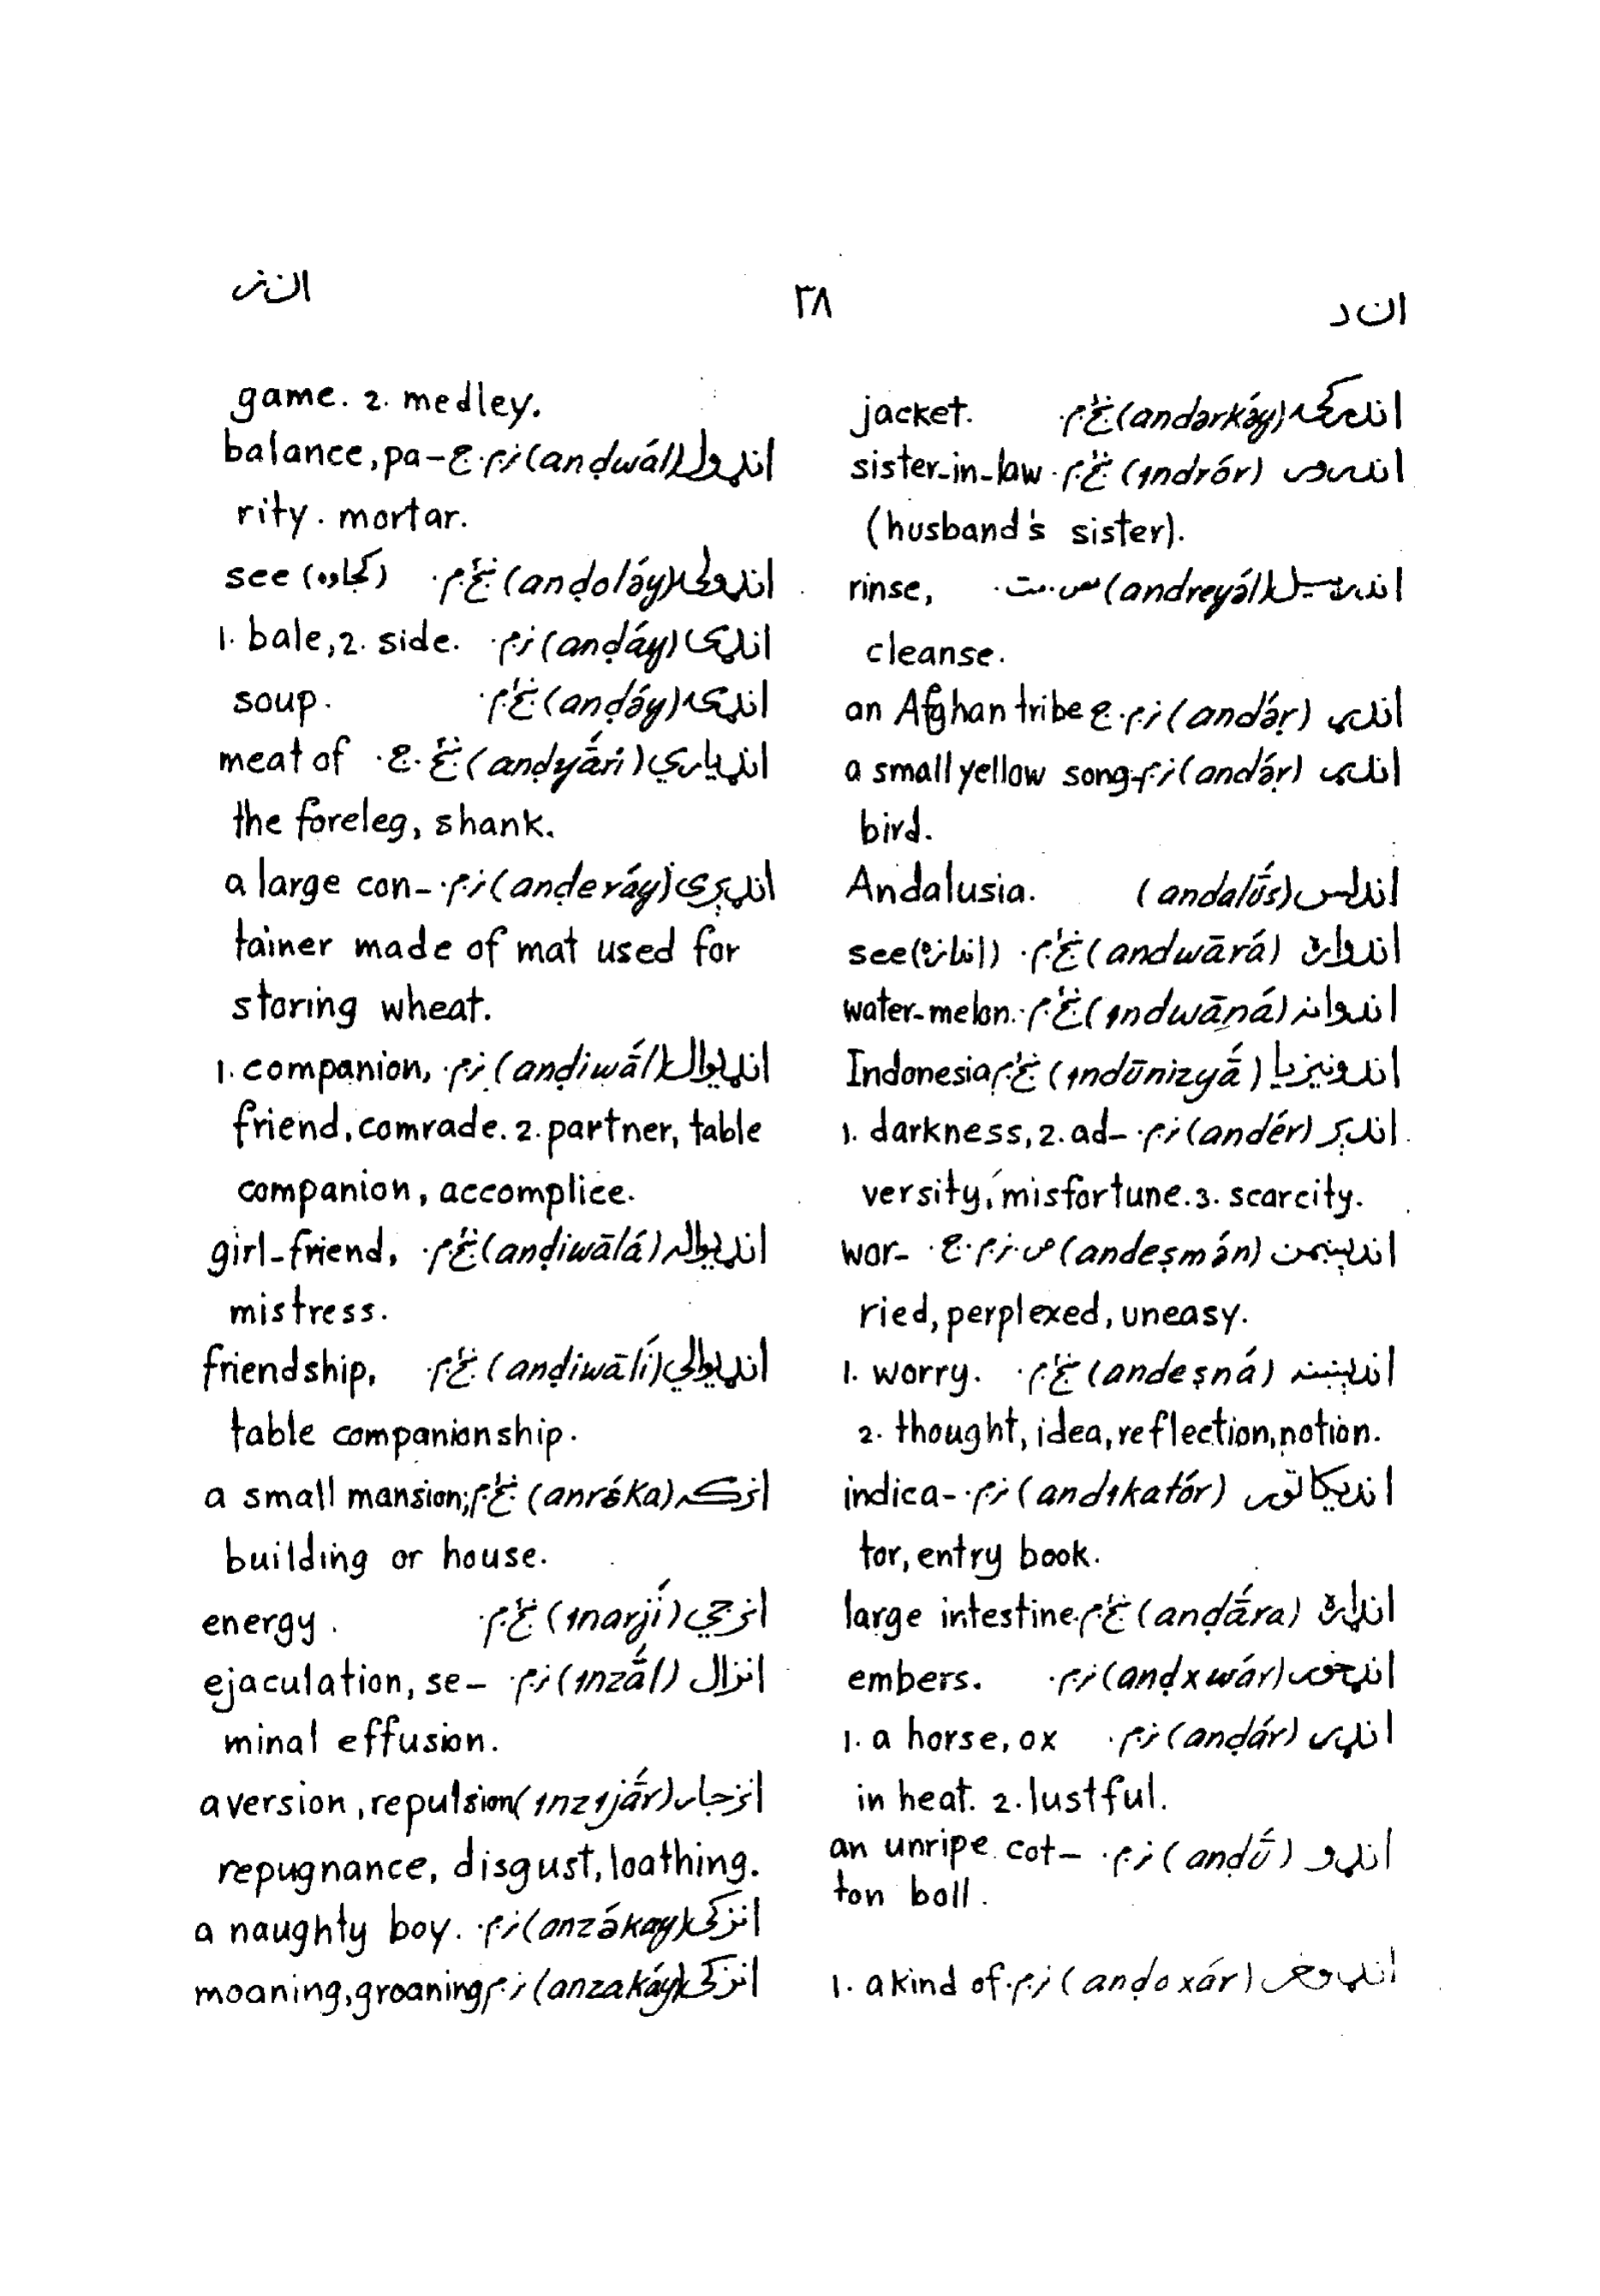 ان د
۳۸
ان ز
اندرکۍ (andərkə́y) ښځ.م. jacket.
اندرور (ɪndrór) ښځ.م. sister-in-law
(husband's sister).
اندریېل (andreyə́l) مص.مت. rinse,
cleanse.
اندړ (andə́ṛ) نر.م.ج an Afghan tribe
اندړ (andə́ṛ) نر.م. a small yellow song-
bird.
اندلس (andalū́s) Andalusia.
اندواره (andwārá) ښځ.م. see (اندازه)
اندوانه (ɪndwāṇá) ښځ.م. water-melon.
اندونیزیا (ɪndūnizyā́) ښځ.م. Indonesia
اندېر (andér) نر.م. 1. darkness, 2. ad-
versity, misfortune. 3. scarcity.
اندېښمن (andeṣmə́n) ص.نر.م.ج. wor-
ried, perplexed, uneasy.
اندېښنه (andeṣná) ښځ.م. 1. worry.
2. thought, idea, reflection, notion.
اندیکاتور (andɪkatór) نر.م. indica-
tor, entry book.
انډاره (anḍā́ra) ښځ.م. large intestine.
انډخور (anḍxwár) نر.م. embers.
انډر (anḍár) نر.م. 1. a horse, ox
in heat. 2. lustful.
انډو (anḍū́) نر.م. an unripe cot-
ton boll.
انډوخر (anḍoxár) نر.م. 1. a kind of
game. 2. medley.
انډول (anḍwál) نر.م.ج balance, pa-
rity. mortar.
انډولۍ (anḍolə́y) ښځ.م. see (کجاوه)
انډی (anḍáy) نر.م. 1. bale, 2. side.
انډۍ (anḍə́y) ښځ.م. soup.
انډیاري (anḍyā́ri) ښځ.ج. meat of
the foreleg, shank.
انډېری (anḍeráy) نر.م. a large con-
tainer made of mat used for
storing wheat.
انډیوال (anḍiwā́l) نر.م. 1. companion,
friend, comrade. 2. partner, table
companion, accomplice.
انډیواله (anḍiwālá) ښځ.م. girl-friend,
mistress.
انډیوالي (anḍiwālí) ښځ.م. friendship,
table companionship.
انرکه (anrə́ka) ښځ.م. a small mansion;
building or house.
انرجي (ɪnarjí) ښځ.م. energy.
انزال (ɪnzā́l) نر.م. ejaculation, se-
minal effusion.
انزجار (ɪnzɪjā́r) aversion, repulsion
repugnance, disgust, loathing.
انزکی (anzə́kay) نر.م. a naughty boy.
انزکی (anzakáy) نر.م. moaning, groaning